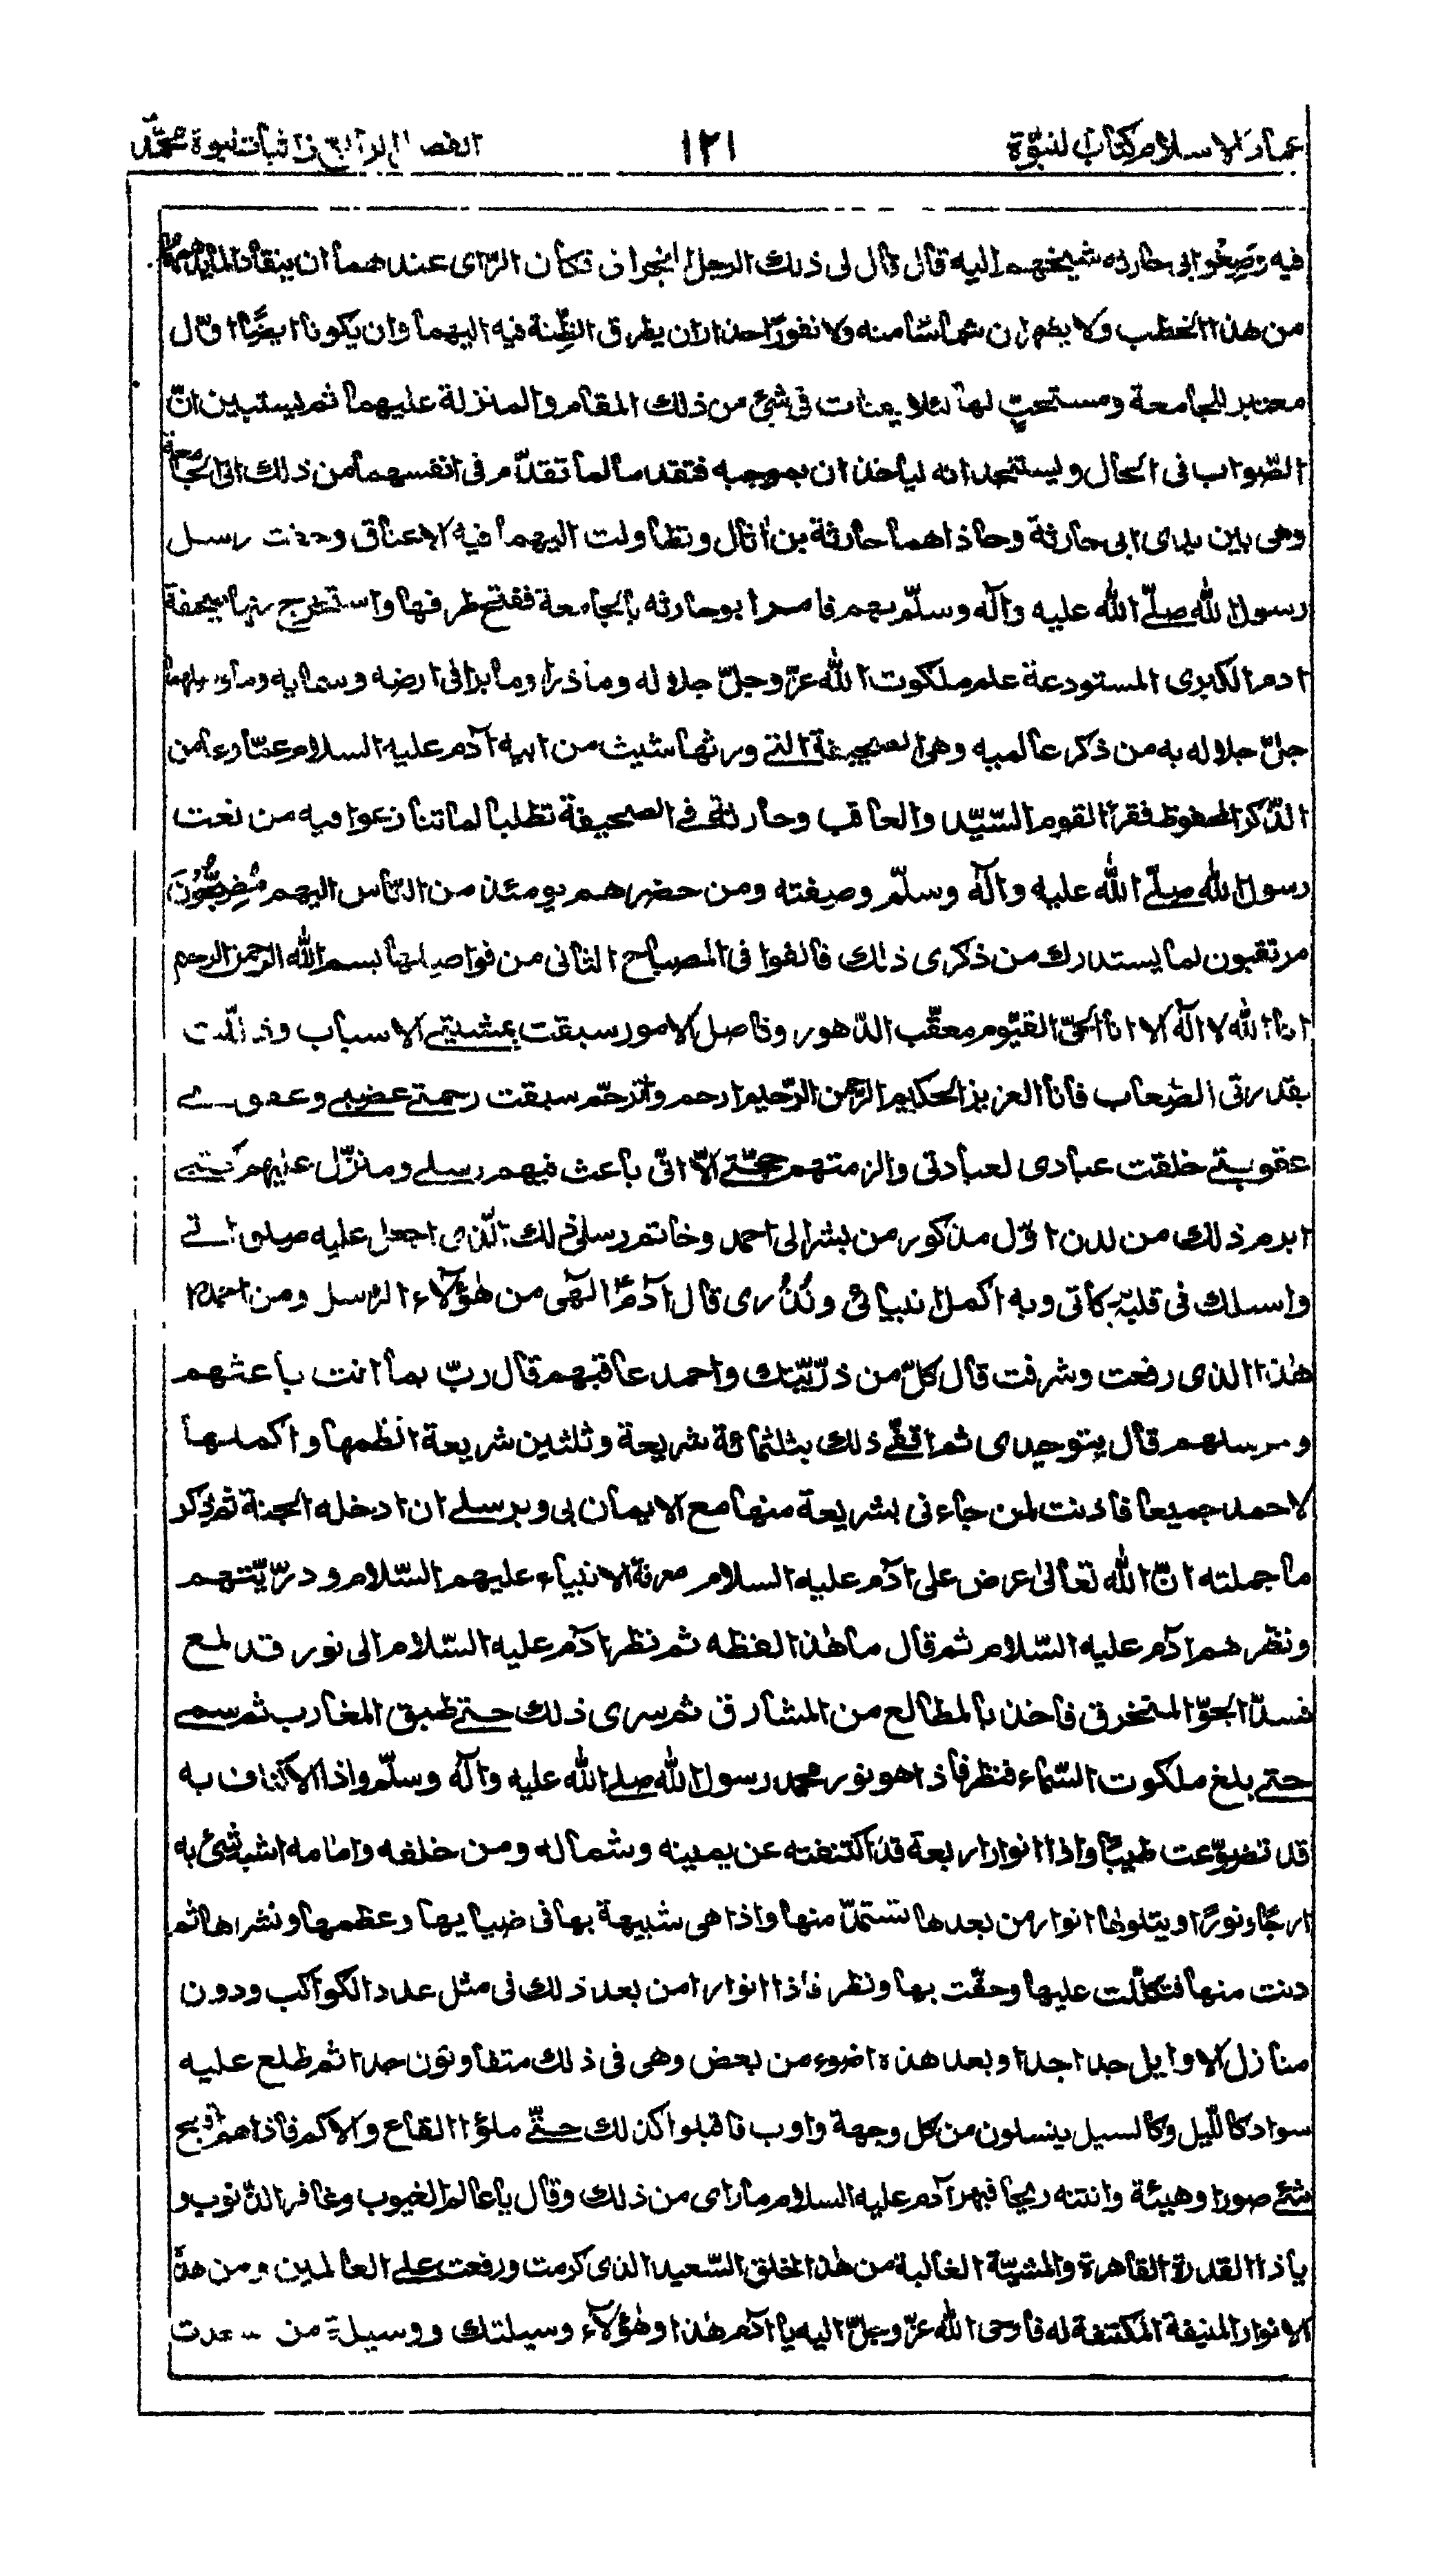 عماد الاسلام كتاب النبوّة ١٢١ الفصل الرابع في اثبات نبوة محمّد
فيه وصغو ابى حارثه شيخهم اليه قال قال لى ذلك الرجل النجرانى فكان الرّاى عندهما ان ينقادا لما يدهمهما
من هذا الخطب ولا يظهران شماسًا منه ولا نفورًا حذار ان يطرق الظّنة فيه اليهما وان يكونا ايضًا اوّل
معتبر للجامعة ومستحثٍّ لها لئلا يفتات فى شئ من ذلك المقام والمنزلة عليهما ثم يستبين انّ
الصّواب فى الحال وليستنجدانه لياخذان بموجبه فتقدما لما تقدّم فى انفسهما من ذلك الى الجامعة
وهى بين يدى ابى حارثة وحاذاهما حارثة بن اثال وتطاولت اليهما فيه الاعناق وحفت رسل
رسول الله صلّے الله عليه وآله وسلّم بهم فامر ابو حارثه بالجامعة ففتح طرفها واستخرج منها صحيفة
ادم الكبرى المستودعة علم ملكوت الله عزّ وجلّ جلاله وما ذرا وما برا فى ارضه وسمايه وما وصلهما
جلّ جلاله به من ذكر عالميه وهى الصحيفة التے ورثها شيث من ابيه آدم عليه السلام عمّا دعا من
الذّكر المحفوظ فقرأ القوم السّيّد والعاقب وحارثة فے الصحيفة تطلبا لما تنازعوا فيه من نعت
رسول الله صلّے الله عليه وآله وسلّم وصفته ومن حضرهم يومئذ من النّاس اليهم مُضِجّون
مرتقبون لما يستدرك من ذكرى ذلك فالفوا فى المصباح الثانى من فواصلها بسم الله الرحمن الرحيم
انا الله لا اله الا انا الحىّ القيّوم معقّب الدّهور وفاصل الامور سبقت بمشيتے الاسباب وذلّلت
بقدرتى الصّعاب فانا العزيز الحكيم الرّحمن الرّحيم ارحم واترحّم سبقت رحمتے غضبے وعفوے
عقوبتے خلقت عبادى لعبادتى والزمتهم حجّتے الّا انّى باعث فيهم رسلے ومنزّل عليهم كتبے
ابرم ذلك من لدن اوّل مذكور من بشر الى احمد وخاتم رسلى ذلك الّذى اجعل عليه صلواتے
واسلك فى قلبه بركاتى وبه اكمل انبيائى ونُذُرى قال آدم الٓهى من هؤلآء الرسل ومن احمد
هٰذا الذى رفعت وشرفت قال كلّ من ذرّيّتك واحمد عاقبهم قال ربّ بما انت باعثهم
ومرسلهم قال بتوحيدى ثم اقفّے ذلك بثلثمائة شريعة وثلثين شريعة انظمها واكملها
لاحمد جميعا فاذنت لمن جاءنى بشريعة منها مع الايمان بى وبرسلے ان ادخله الجنة ثم ذكر
ما جملته انّ الله تعالىٰ عرض على ادٓم عليه السلام معرفة الانبياء عليهم السّلام وذرّيّتهم
ونظر هم ادٓم عليه السّلام ثم قال ما هٰذا لفظه ثم نظر ادٓم عليه السّلام الى نور قد لمع
فسدّ الجوّ المنخرق فاخذ بالمطالع من المشارق ثم سرى ذلك حتے طبق المغارب ثم سمے
حتے بلغ ملكوت السّماء فنظر فاذا هو نور محمد رسول الله صلے الله عليه وآله وسلّم واذا الاكناف به
قد تضوّعت طيبًا واذا انوار اربعة قد اكتنفته عن يمينه وشماله ومن خلفه وامامه اشبه شئ به
ارجًا ونورًا ويتلوها انوار من بعدها تستمدّ منها واذا هى شبيهة بها فى ضيايها وعظمها ونشراها ثم
دنت منها فتكلّلت عليها وحفّت بها ونظر فاذا انوارا من بعد ذلك فى مثل عدد الكواكب ودون
منازل الاوايل جدا جدا وبعد هذه اضوء من بعض وهى فى ذلك متفاوتون جدا ثم طلع عليه
سواد كاللّيل وكالسيل ينسلون من كل وجهة واوب فاقبلوا كذلك حتّے ملؤا القاع والاكم فاذا هم اقبح
شئے صورا وهيئة وانتنه ريحا فبهر آدم عليه السلام ما راى من ذلك وقال يا عالم الغيوب وغافر الذّنوب و
يا ذا القدرة القاهرة والمشيّة الغالبة من هٰذا الخلق السّعيد الذى كرمت ورفعت علے العالمين ومن هذه
الانوار المنيفة المكتنفة له فاوحى الله عزّ وجلّ اليه يا آدم هٰذا وهٰؤلآء وسيلتك ووسيلة من سعدت